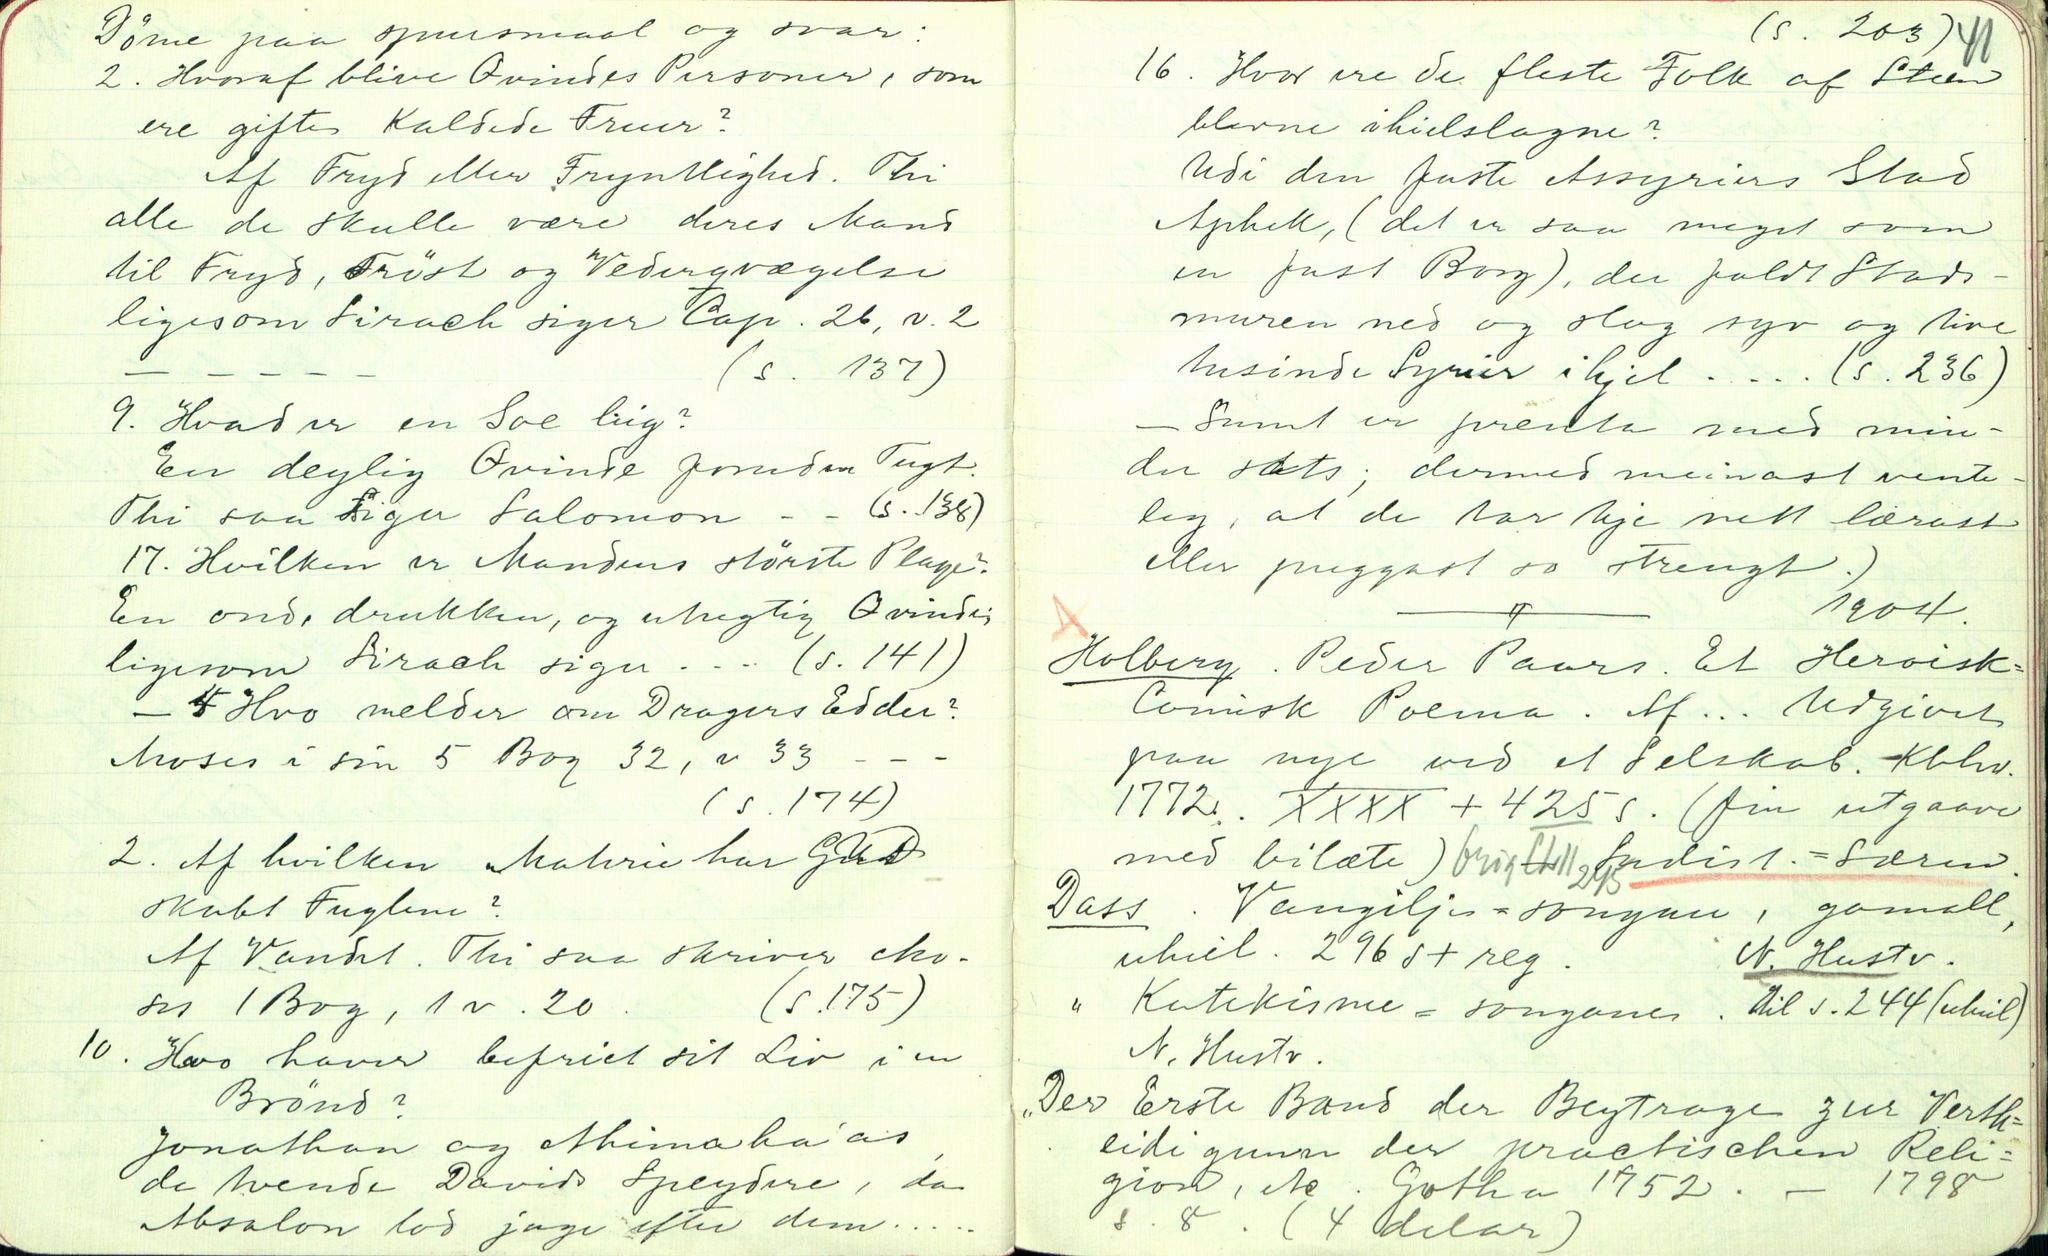 Døme paa spursmaal og svar:
2. Hvoraf blive Qvindes Personer, som
ere giftes Kaldede Fruer?
Af Fryd eller Fryntlighed. Thi
alle de skulle være deres Mand
til Fryd, Trøst og Vedergvægelse
ligesom Sirach siger Cap. 26, v. 2
— — — — — (s. 137)
9. Hvad er en Soe liig?
En deylig Qvinde foruden Tugt.
Thi saa siger Salomon - - (s. 138)
17. Hvilken er Mandens største Plage?
En ond, drukken, og utugtig Qvinde,
ligesom Sirach siger - - - (s. 141)
— Hvo melder om Dragers Edder?
Moses i sin 5 Bog 32, v 33 - - -
(s. 174)
2. Af hvilken Materie har GUD
skabt Fuglene?
Af Vandet. Thi saa skriver Mo-
ses 1 Bog, 1 v. 20. (s. 175)
10. Hvo haver befriet sit Liv i en
Brönd?
Jonathan og Ahimaha'as,
de tvende Davids Speydere, da
Absalon lod jage efter dem.....
(s. 203) 41
16. Hvor ere de fleste Folk af Steen
blevne ihielslagne?
Udi den faste Assyriers Stad
Aphek, (det er saa meget som
en fast Borg), der faldt Stads-
muren ned og slog syv og tive
tusinde Syrier ihjel .... (s. 236)
— Sumt er prenta med min-
dre stets; dermed meinast vente-
leg, at de tar kje nett lærast
eller puggast so strengt.)
1904.
Holberg. Peder Paars. Et Heroisk=
Comisk Poema. Af... Udgivet
paa nye ved et Selskab. Kbhv.
1772. XXXX + 425 s. (fin utgaave
med bilæte) Sndist.=Særen.
Dass. Vangilje=songar, gamall,
uheil. 296 s + reg. N. Hustv.
" Katekisme=songanes. til s. 244 (uheil)
N. Hustv.
"Der Erste Band der Beytrage zur Verth=
eidigunn der practischen Reli=
gion, etc. Gotha 1752. — 1798
s. 8. (4 delar)